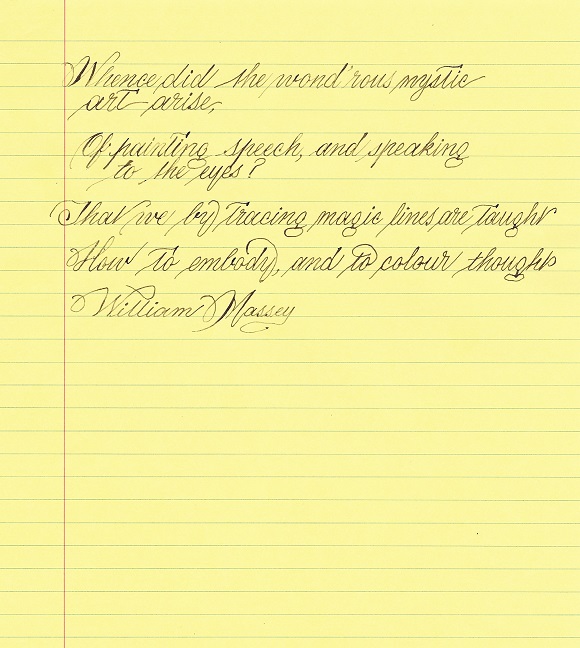 Whence did the wond'rous mystic
art arise,
Of painting speech, and speaking
to the eyes?
That we by tracing magic lines are taught
How to embody, and to colour thought
William Massey